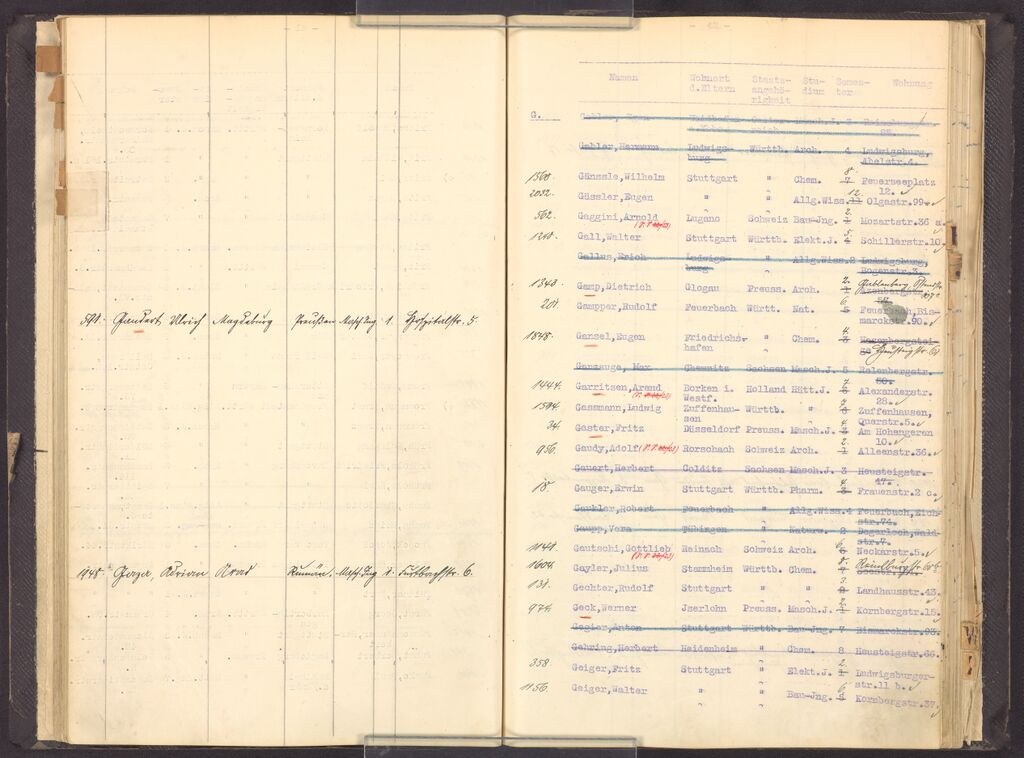 581. Gandert Ulrich Magdeburg Preußen Masch.Ing 1. Hospitalstr. 5.
1948 Arad Rumän. Masch.Ing 1. Furtbachstr. 6.
- 42 -
Namen Wohnort d.Eltern Staats-angehö-rigkeit Stu-dium Semes-ter Wohnung
G.
Gabler, Hermann Ludwigs-burg Württb. Arch. 4 Ludwigsburg, Abelstr.4.
1568 Gänssle, Wilhelm Stuttgart " Chem. 8. 7 Feuerseeplatz 12. ✓
2032. Gässler, Eugen " " Allg.Wiss. 12. 11 Olgastr.99. ✓
562. Gaggini, Arnold Lugano Schweiz Bau-Jng. 2. 1 Mozartstr.36 a.
1210. Gall, Walter Stuttgart Württb. Elekt.J. 5. 4 Schillerstr.10.
Gallus, Erich Ludwigs-burg " Allg.Wiss.2 Ludwigsburg, Bogenstr.3.
1343. Gamp, Dietrich Glogau Preuss. Arch. 2. 1
201. Gampper, Rudolf Feuerbach Württ. Nat. 6 Feuerbach, Bis-marckstr.90. ✓
1848. Gansel, Eugen Friedrichs-hafen " Chem. 4. 3
Ganzauge, Max Chemnitz Sachsen Masch.J. 5 Relenbergstr.
1444. Garritsen, Arend Borken i. Westf. Holland Hütt.J. 7 6 Alexanderstr. 28. ✓
1594. Gassmann, Ludwig Zuffenhau-sen Württb. " 7 Zuffenhausen, Querstr.5. ✓
34. Gaster, Fritz Düsseldorf Preuss. Masch.J. 4 3 Am Hohengeren 10. ✓
956. Gaudy, Adolf Rorschach Schweiz Arch. 2. 1 Alleenstr.36. ✓
Gauert, Herbert Colditz Sachsen Masch.J. 3 Heusteigstr. 47.
18. Gauger, Erwin Stuttgart Württb. Pharm. 4 3 Frauenstr.2 c. ✓
Gaukler, Robert Feuerbach " Allg.Wiss.4 Feuerbach, Eich-str.74.
Gaupp, Vera Tübingen " Naturw. 2 Degerloch, Wald-str.7.
1141. Gautschi, Gottlieb Reinach Schweiz Arch. 6 Neckarstr.5. ✓
1604. Gayler, Julius Stammheim Württb. Chem. 8. 7
131. Gechter, Rudolf Stuttgart " " 3. Landhausstr.43. ✓
974. Geck, Werner Jserlohn Preuss. Masch.J. 2 1 Kornbergstr.15. ✓
Gegier, Anton Stuttgart Württb. Bau-Jng. 7 Bismarckstr.93.
Gehring, Herbert Heidenheim " Chem. 8 Heusteigstr.66.
358 Geiger, Fritz Stuttgart " Elekt.J. 2. 1 Ludwigsburger-str.11 b. ✓
1156. Geiger, Walter " " Bau-Jng. 6 5 Kornbergstr.37. ✓